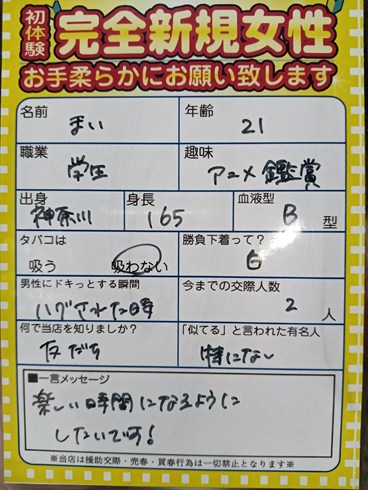 初体験
完全新規女性
お手柔らかにお願い致します
名前
まい
年齢
21
職業
学生
趣味
アニメ鑑賞
出身
神奈川
身長
165
血液型
B 型
タバコは
吸う 吸わない
勝負下着って？
6
男性にドキっとする瞬間
ハグされた時
今までの交際人数
2 人
何で当店を知りましたか？
友だち
「似てる」と言われた有名人
特にない
■一言メッセージ
楽しい時間になるように
したいです!
※当店は援助交際・売春・買春行為は一切禁止となります※